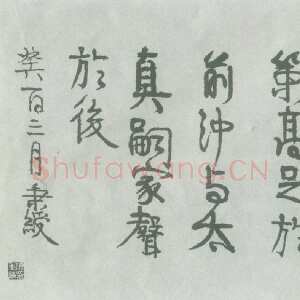 策高足於
前沖与太
真嗣家聲
於後
癸酉三月秉綬
Shufawang.CN